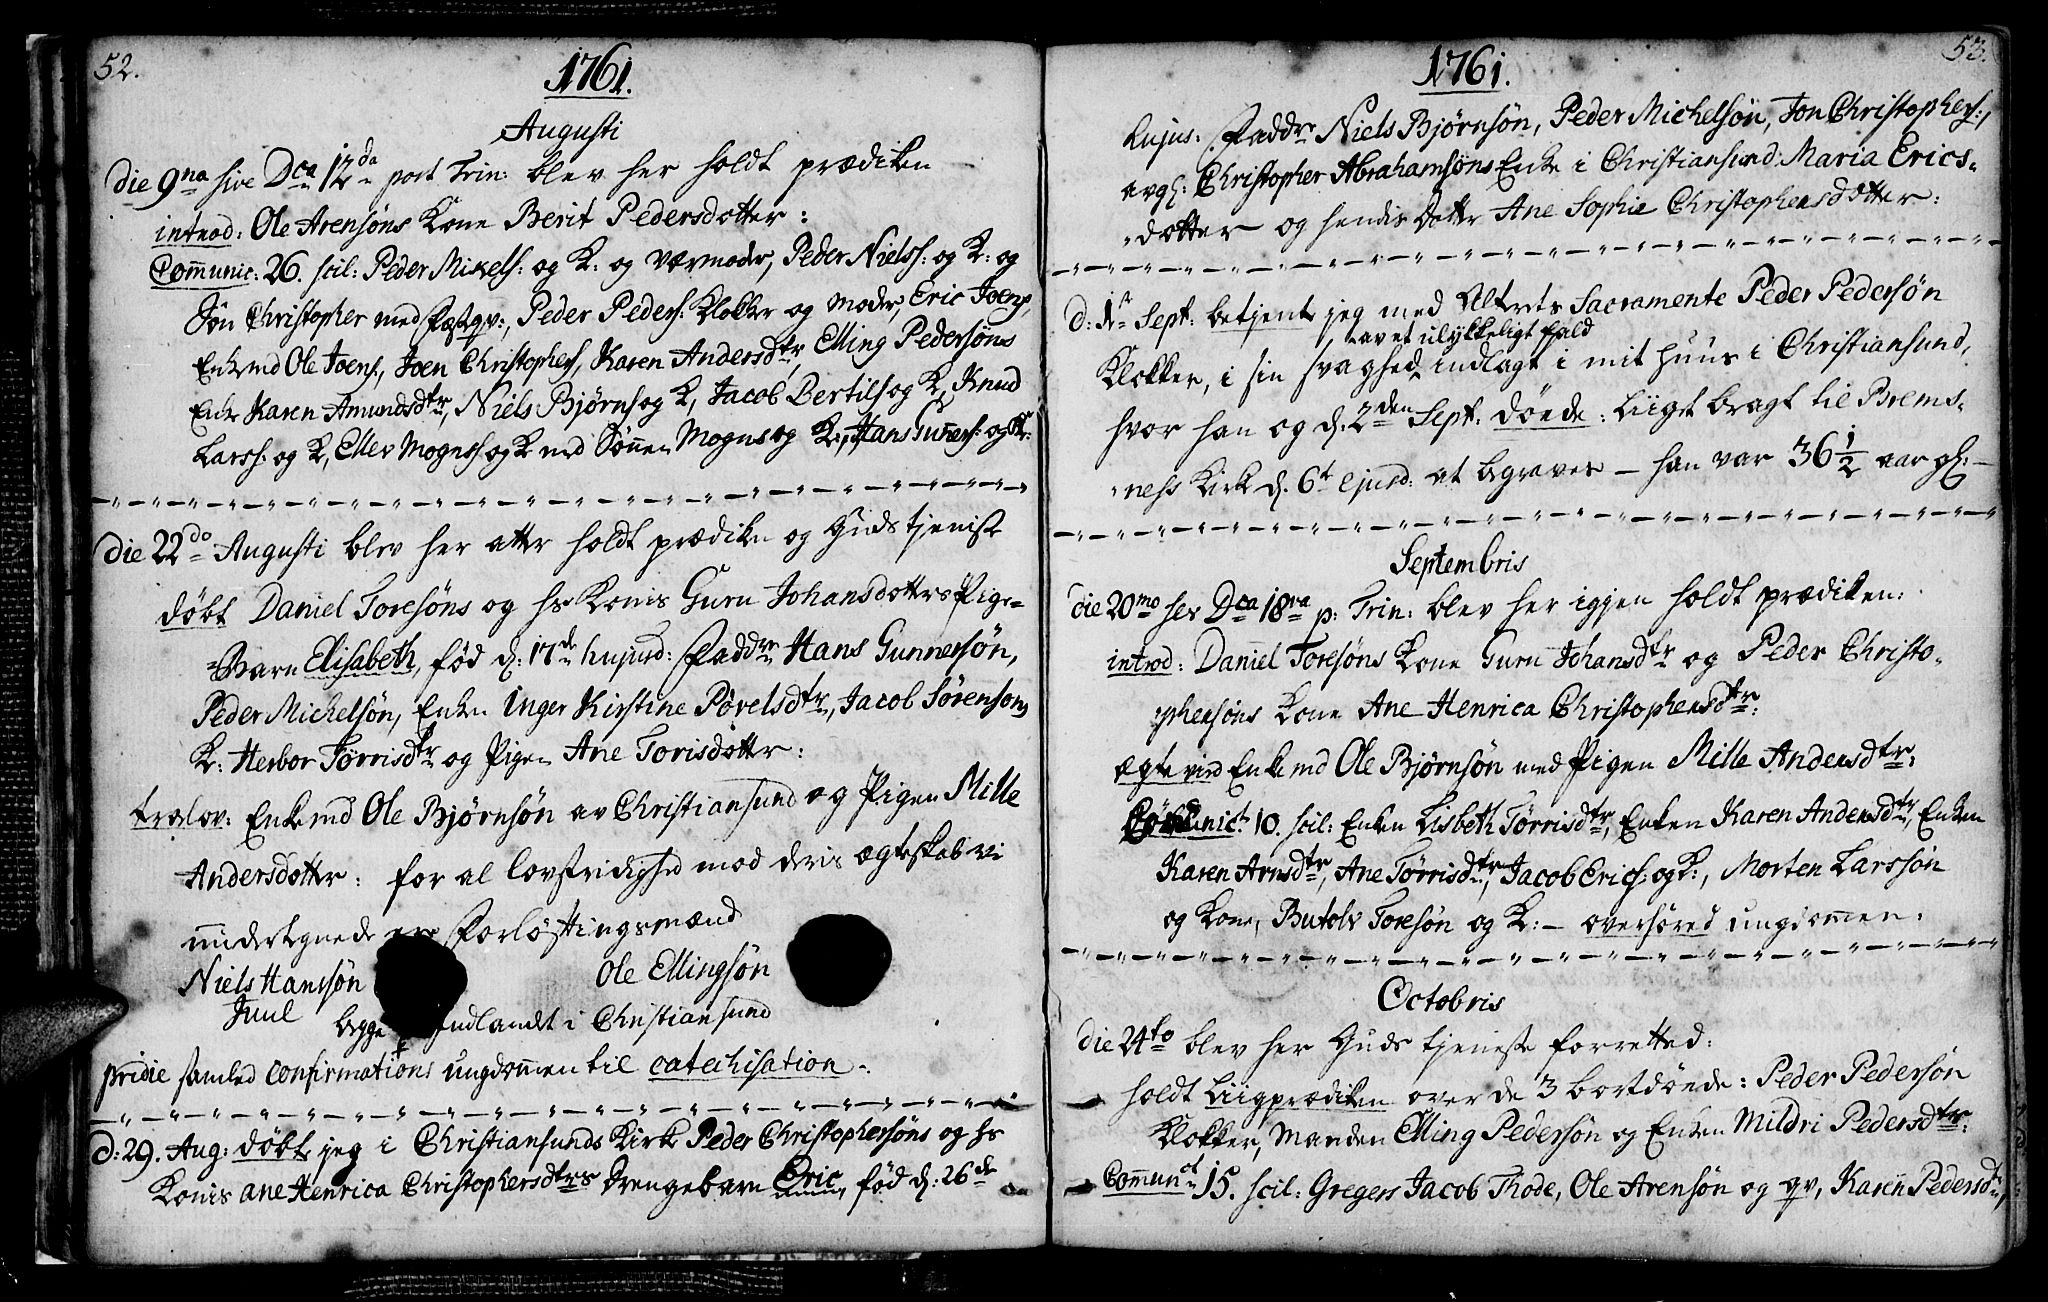 52.
1761.
Augusti
die 9na sive Dca 12da post Trin: blev her holdt prædiken
introd: Ole Arensøns Kone Berit Pedersdotter:
Com̄unic: 26. scil: Peder Mikels: og K: og Værmoder, Peder Niels: og K: og
Søn Christopher med Fæstqv:, Peder Peders: Klokker og moder, Eric Joens,
Enkemd Ole Joens:, Joen Christophers, Karen Andersdtr, Elling Pedersøns
Enke Karen Amundsdtr, Niels Bjørns og K, Jacob Bertils og K, Knud
Larss: og K, Ellev Mogns: og K med Søn̄en Mogns og K:, Hans Gun̄ers: og K:
die 22do Augusti blev her atter holdt prædiken og Guds tjeniste
døbt Daniel Toresøns og hs Konis Guru Johansdotters Pige-
Barn Elisabeth, fød d: 17de hujusd: Faddre Hans Gunnersøn,
Peder Michelsøn, Enken Inger Kirstine Povelsdtr, Jacob Sørensons
K: Herbor Tørrisdtr og Pigen Ane Torisdotter:
trolov: Enkemd Ole Bjørnsøn av Christiansund og Pigen Mille
Andersdotter: for al lovstridighed mod deris ægteskab vi
undertegnede ere Forløftingsmænd
Niels Hansøn Ole Ellingsøn
Juul begge Indlandt i Christiansund
pridie samled confirmations ungdom̄en til catechisation.
d: 29. Aug: døbt jeg i Christiansunds Kirke Peder Christophersøns og hs
Konis ane Henrica Christophersdtrs Drengebarn Eric, fød d: 26de
53.
1761.
hujus: Faddre Niels Bjørnsøn, Peder Michelsøn, Jon Christophers:,
avgl: Christopher Abrahamsøns Enke i Christiansund: Maria Erics-
dotter og hendis Datter Ane Sophie Christophersdotter:
d: 1te Sept: betjente jeg med Alterets Sacramente Peder Pedersøn
avet ulykkeligt Fald
Klokker, i sin svaghed indlagt i mit huus i Christiansund,
hvor han og d. 2den Sept: døde: Liiget bragt til Brems-
ness Kirke d. 6te ejusd: at begraves — han var 36 1/2 aar gl: —
Septembris
die 20mo sev Dca 18va p: Trin: blev her igjen holdt prædiken:
introd: Daniel Toresøns Kone Guru Johansdtr og Peder Christo-
phersøns Kone Ane Henrica Christophersdtr:
ægte vied Enkemd Ole Bjørnsøn med Pigen Mille Andersdtr:
Com̄unict: 10. scil: Enken Lisbeth Tørrisdtr, Enken Karen Andersdtr, Enken
Karen Arnsdtr, Ane Tørrisdtr, Jacob Erics: og K:, Morten Larssøn
og Kone, Butolv Toresøn og K: — overhøred ungdom̄en:
Octobris
die 24to blev her Guds tjeneste forretted:
holdt Liigprædiken over de 3 bortdøde: Peder Pedersøn
Klokker, Manden Elling Pedersøn og Enken Mildri Pedersdtr:
Com̄unct 15. scil: Gregers Jacob Thode, Ole Arensøn og qv, Karen Pedersdtr,